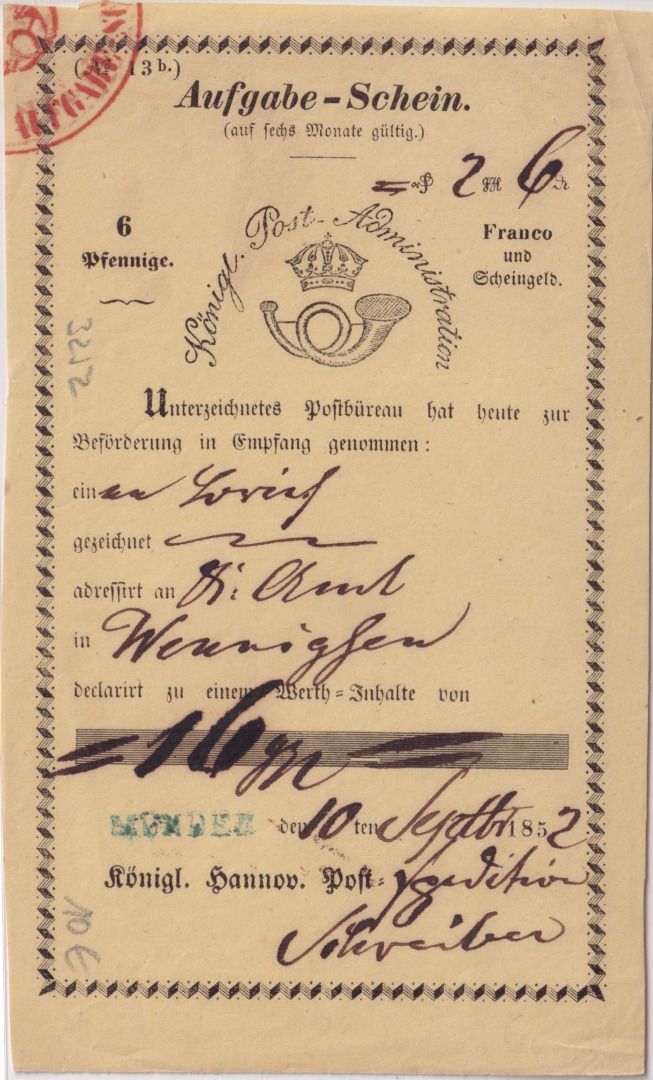 AUFGABE
(№ 13 b.)
Aufgabe-Schein.
(auf sechs Monate gültig.)
2 6
6
Pfennige.
Königl. Post-Administration
Franco
und
Scheingeld.
3212
Unterzeichnetes Postbüreau hat heute zur
Beförderung in Empfang genommen:
einen Brief
gezeichnet
adressirt an K: Amt
in Wennigsen
declarirt zu einem Werth-Inhalte von
= 16 =
MÜNDER den 10 ten Septbr 1852
Königl. Hannov. Post-Spedition
Schreiber